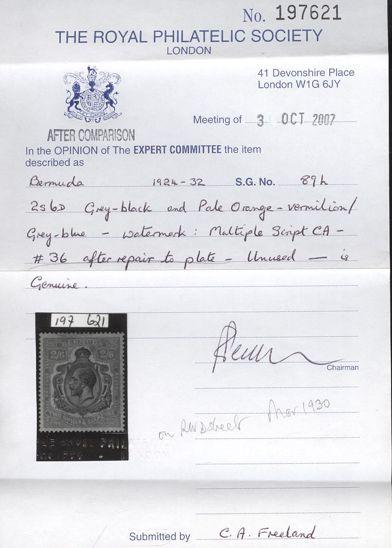 No. 197621
THE ROYAL PHILATELIC SOCIETY
LONDON
41 Devonshire Place
London W1G 6JY
AFTER COMPARISON
Meeting of 3 OCT 2007
In the OPINION of The EXPERT COMMITTEE the item
described as
Bermuda 1924-32 S.G. No. 89h
2s6D Grey-black and Pale Orange-vermilion/
Grey-blue - watermark: Multiple Script CA -
#36 after repair to plate - Unused - is
Genuine.
197 621
2/6 2/6
Chairman
on piece Mar 1930
Submitted by C.A. Freeland